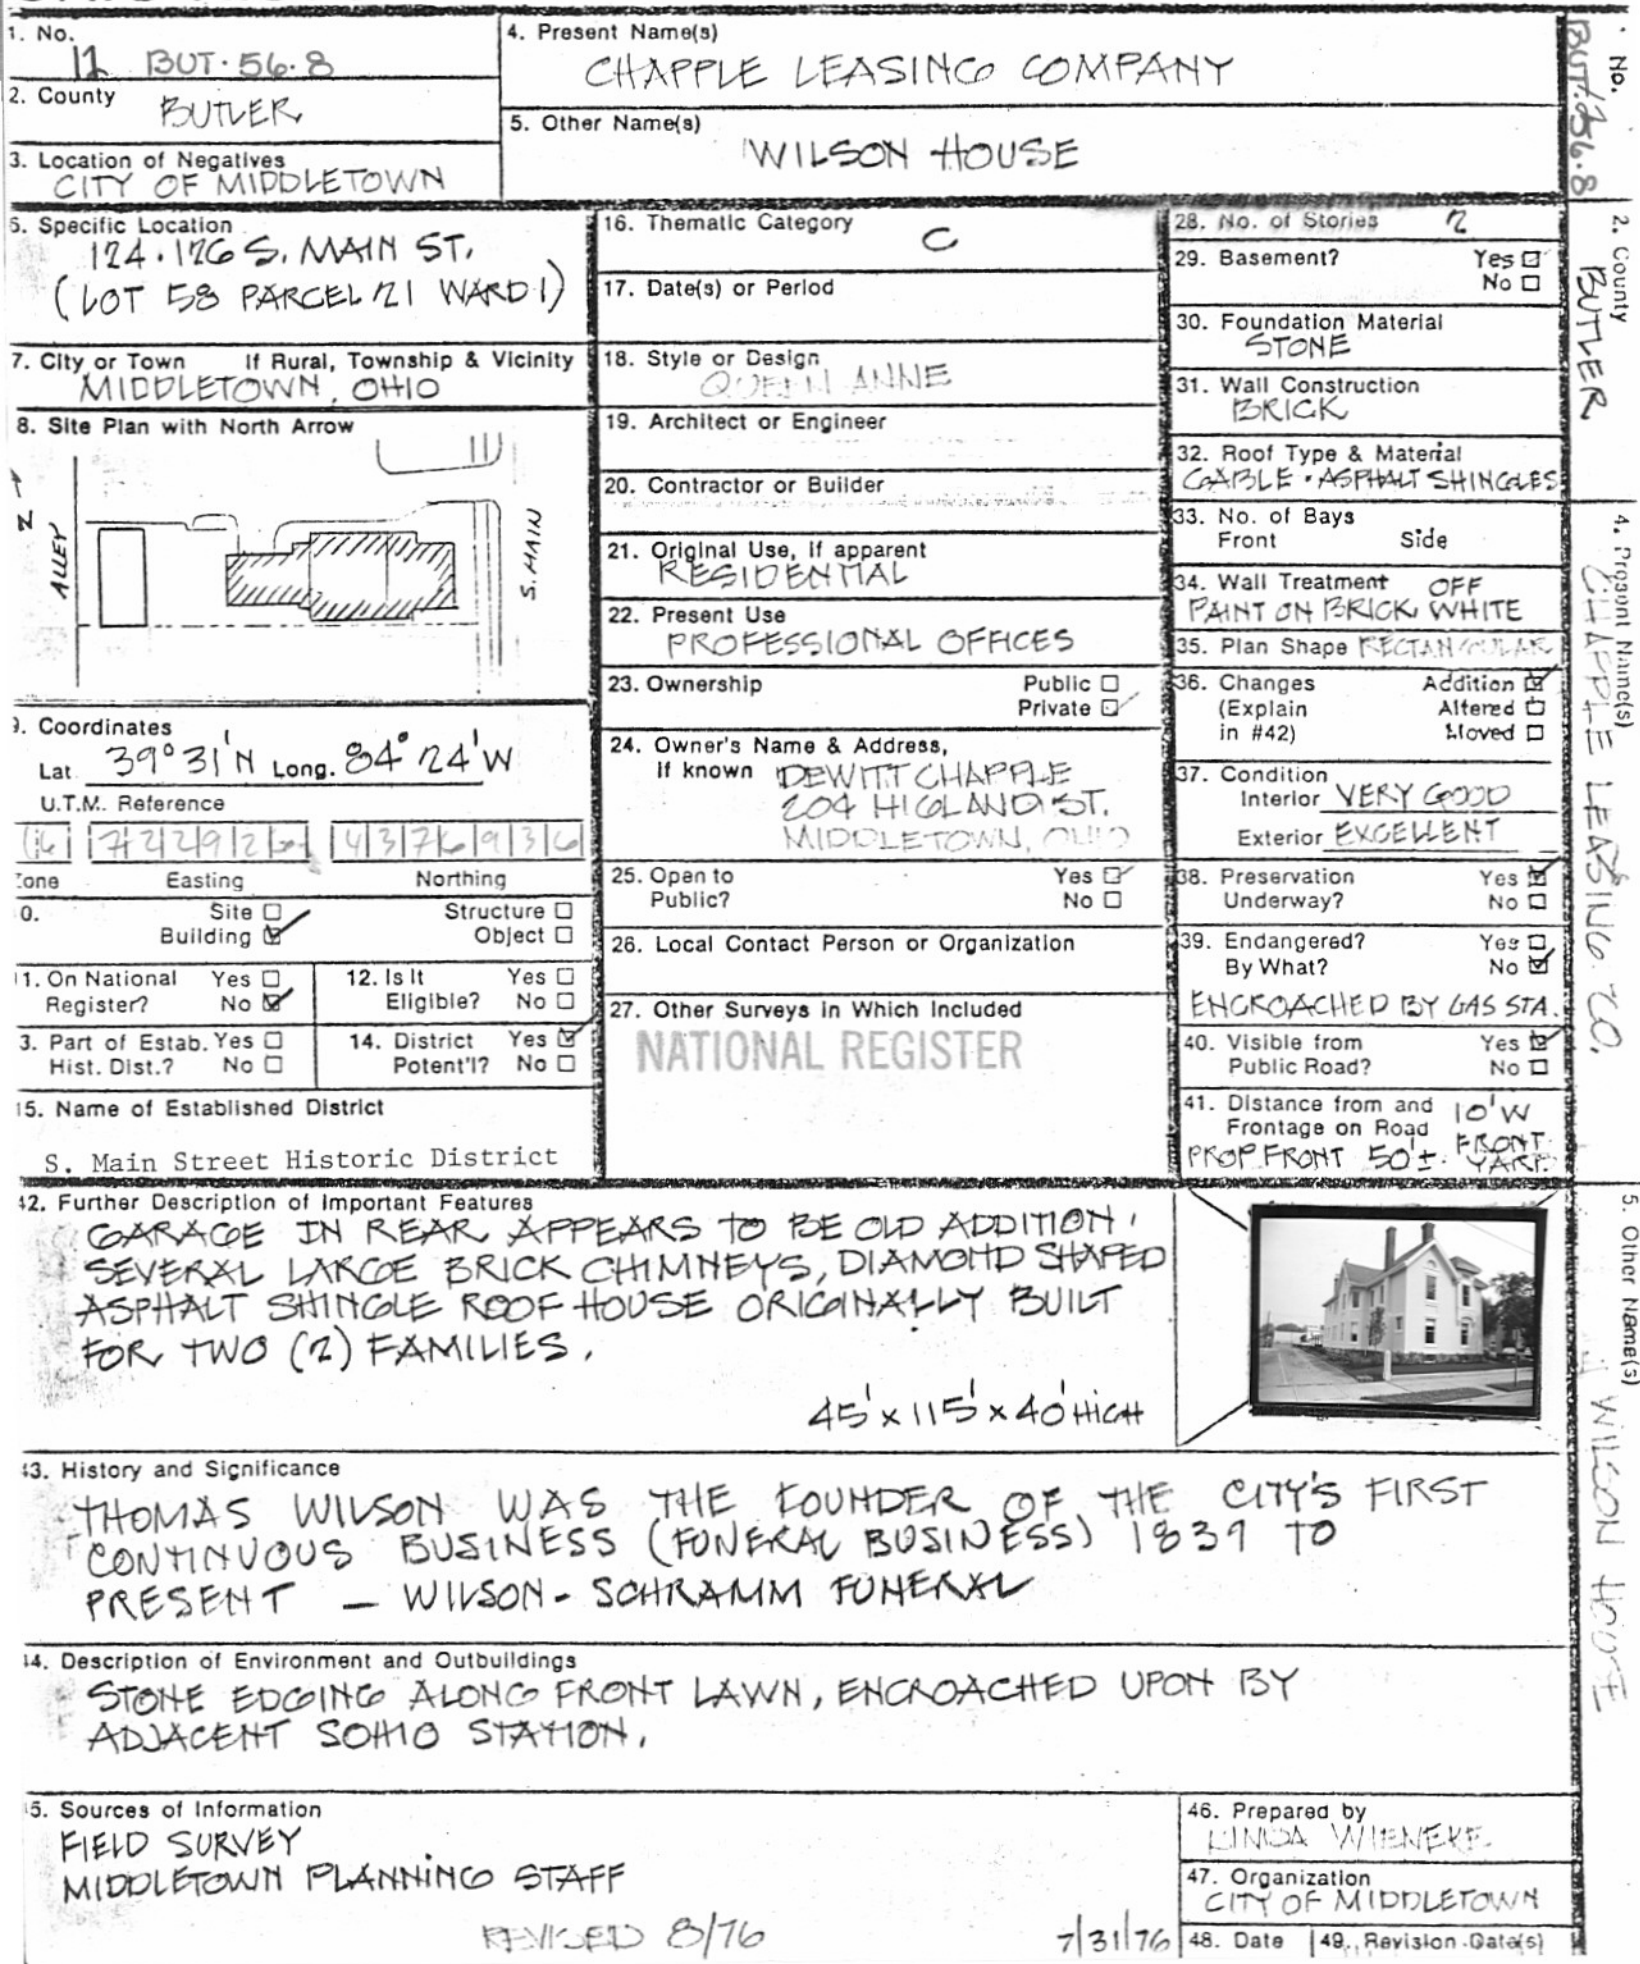 1. No.
12 BUT-56-8
2. County
BUTLER
3. Location of Negatives
CITY OF MIDDLETOWN
4. Present Name(s)
CHAPPLE LEASING COMPANY
5. Other Name(s)
WILSON HOUSE
6. Specific Location
124-126 S. MAIN ST.
(LOT 58 PARCEL 21 WARD 1)
7. City or Town If Rural, Township & Vicinity
MIDDLETOWN, OHIO
8. Site Plan with North Arrow
N
ALLEY
S. MAIN
9. Coordinates
Lat. 39° 31' N Long. 84° 24' W
U.T.M. Reference
16 72292 4376936
Zone Easting Northing
10. Site Structure
Building Object
11. On National Yes
Register? No
12. Is It Yes
Eligible? No
13. Part of Estab. Yes
Hist. Dist.? No
14. District Yes
Potent'l? No
15. Name of Established District
S. Main Street Historic District
16. Thematic Category
C
17. Date(s) or Period
18. Style or Design
QUEEN ANNE
19. Architect or Engineer
20. Contractor or Builder
21. Original Use, if apparent
RESIDENTIAL
22. Present Use
PROFESSIONAL OFFICES
23. Ownership Public
Private
24. Owner's Name & Address,
if known DEWITT CHAPPLE
204 HIGLAND ST.
MIDDLETOWN, OHIO
25. Open to Yes
Public? No
26. Local Contact Person or Organization
27. Other Surveys in Which Included
NATIONAL REGISTER
28. No. of Stories 2
29. Basement? Yes
No
30. Foundation Material
STONE
31. Wall Construction
BRICK
32. Roof Type & Material
GABLE - ASPHALT SHINGLES
33. No. of Bays
Front Side
34. Wall Treatment OFF
PAINT ON BRICK WHITE
35. Plan Shape RECTANGULAR
36. Changes Addition
(Explain Altered
in #42) Moved
37. Condition
Interior VERY GOOD
Exterior EXCELLENT
38. Preservation Yes
Underway? No
39. Endangered? Yes
By What? No
ENCROACHED BY GAS STA.
40. Visible from Yes
Public Road? No
41. Distance from and 10' W
Frontage on Road FRONT
PROP FRONT 50'±. YARD
42. Further Description of Important Features
GARAGE IN REAR APPEARS TO BE OLD ADDITION,
SEVERAL LARGE BRICK CHIMNEYS, DIAMOND SHAPED
ASPHALT SHINGLE ROOF HOUSE ORIGINALLY BUILT
FOR TWO (2) FAMILIES.
45' x 115' x 40' HIGH
43. History and Significance
THOMAS WILSON WAS THE FOUNDER OF THE CITY'S FIRST
CONTINUOUS BUSINESS (FUNERAL BUSINESS) 1839 TO
PRESENT — WILSON-SCHRAMM FUNERAL
44. Description of Environment and Outbuildings
STONE EDGING ALONG FRONT LAWN, ENCROACHED UPON BY
ADJACENT SOHIO STATION.
45. Sources of Information
FIELD SURVEY
MIDDLETOWN PLANNING STAFF
REVISED 8/76
7/31/76
46. Prepared by
LINDA WIENEKE
47. Organization
CITY OF MIDDLETOWN
48. Date 49. Revision Date(s)
No.
BUT-56-8
2. County
BUTLER
4. Present Name(s)
CHAPPLE LEASING CO.
5. Other Name(s)
WILSON HOUSE